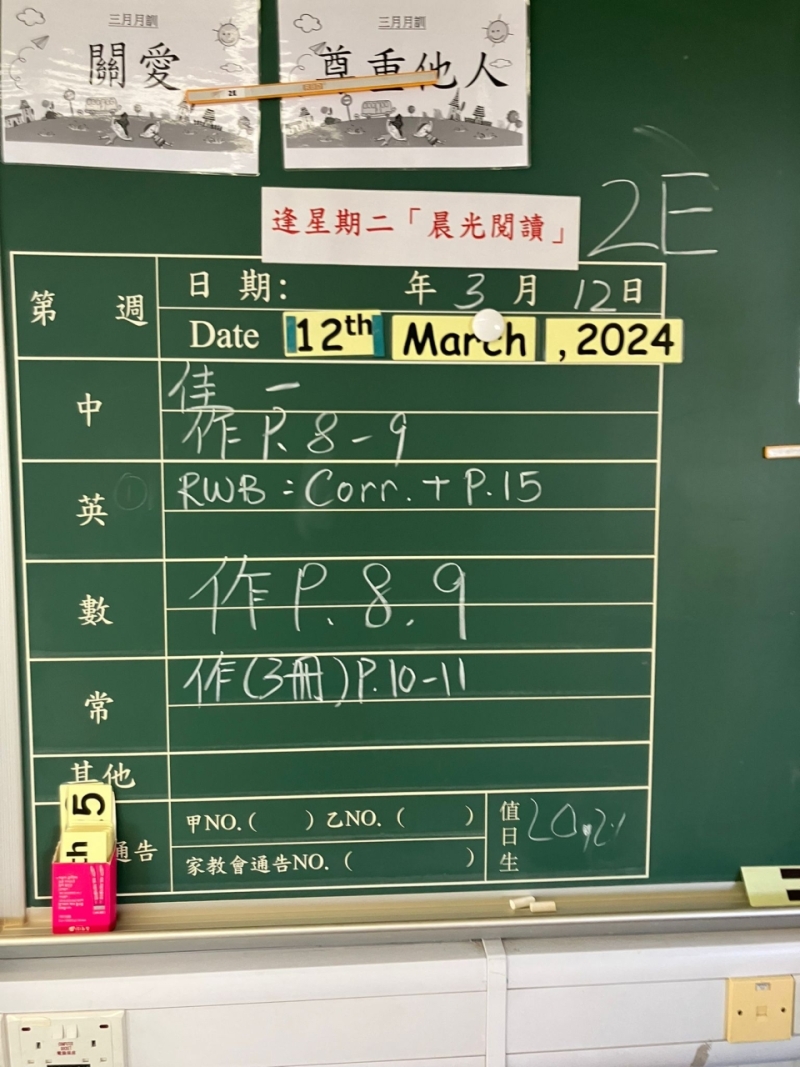 三月月訓
關愛
三月月訓
尊重他人
逢星期二「晨光閱讀」
2E
第 週
日 期: 年 3 月 12 日
Date 12th March , 2024
中
佳 一
作 P. 8-9
英
RWB : Corr. + P.15
數
作 P. 8. 9
常
作(3冊) P.10-11
其他
通告
甲NO.( ) 乙NO. ( )
家教會通告NO. ( )
值日生
20, 21
5
ch